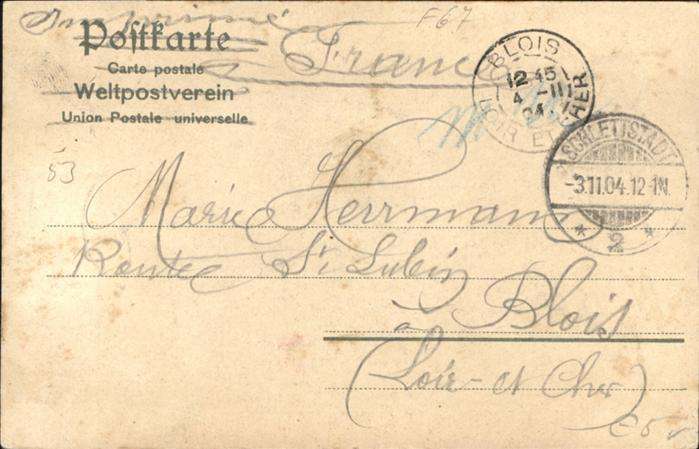 Imprimé
Postkarte
Carte postale
Weltpostverein
Union Postale universelle
France
F67
BLOIS
12 45
4 - III
04
LOIR ET CHER
SCHLETTSTADT
-3.11.04.12-1N.
* 2 *
53
Marie Herrmann
Route St Lubin
Blois
(Loir-et Cher)